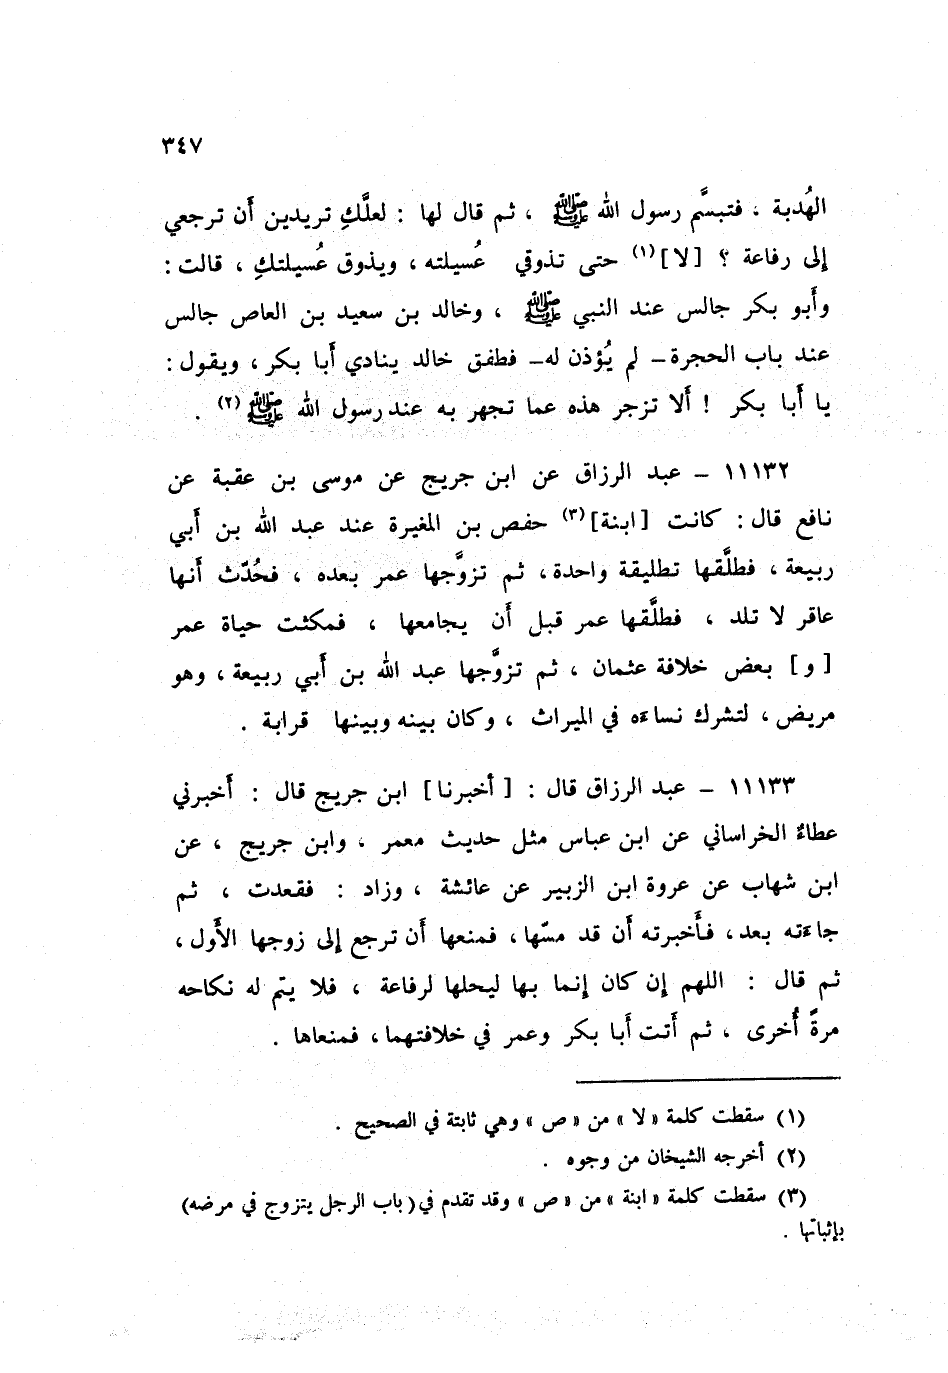 ٣٤٧
الهُدبة ، فتبسَّم رسول الله ﷺ ، ثم قال لها : لعلَّكِ تريدين أَن ترجعي
إلى رفاعة ؟ [لا] (١) حتى تذوقي عُسيلته ، ويذوق عُسيلتكِ ، قالت :
وأَبو بكر جالس عند النبي ﷺ ، وخالد بن سعيد بن العاص جالس
عند باب الحجرة – لم يُؤذن له – فطفق خالد ينادي أَبا بكر ، ويقول :
يا أَبا بكر ! أَلا تزجر هذه عما تجهر به عند رسول الله ﷺ (٢) .
١١١٣٢ – عبد الرزاق عن ابن جريج عن موسى بن عقبة عن
نافع قال : كانت [ابنة] (٣) حفص بن المغيرة عند عبد الله بن أَبي
ربيعة ، فطلَّقها تطليقة واحدة ، ثم تزوَّجها عمر بعده ، فحُدّث أَنها
عاقر لا تلد ، فطلَّقها عمر قبل أَن يجامعها ، فمكثت حياة عمر
[و] بعض خلافة عثمان ، ثم تزوَّجها عبد الله بن أَبي ربيعة ، وهو
مريض ، لتشرك نساءه في الميراث ، وكان بينه وبينها قرابة .
١١١٣٣ – عبد الرزاق قال : [أخبرنا] ابن جريج قال : أَخبرني
عطاءٌ الخراساني عن ابن عباس مثل حديث معمر ، وابن جريج ، عن
ابن شهاب عن عروة ابن الزبير عن عائشة ، وزاد : فقعدت ، ثم
جاءته بعد ، فأَخبرته أَن قد مسّها ، فمنعها أَن ترجع إلى زوجها الأَول ،
ثم قال : اللهم إن كان إنما بها ليحلها لرفاعة ، فلا يتم له نكاحه
مرةً أُخرى ، ثم أَتت أَبا بكر وعمر في خلافتهما ، فمنعاها .
(١) سقطت كلمة « لا » من « ص » وهي ثابتة في الصحيح .
(٢) أخرجه الشيخان من وجوه .
(٣) سقطت كلمة « ابنة » من « ص » وقد تقدم في (باب الرجل يتزوج في مرضه)
بإثباتها .